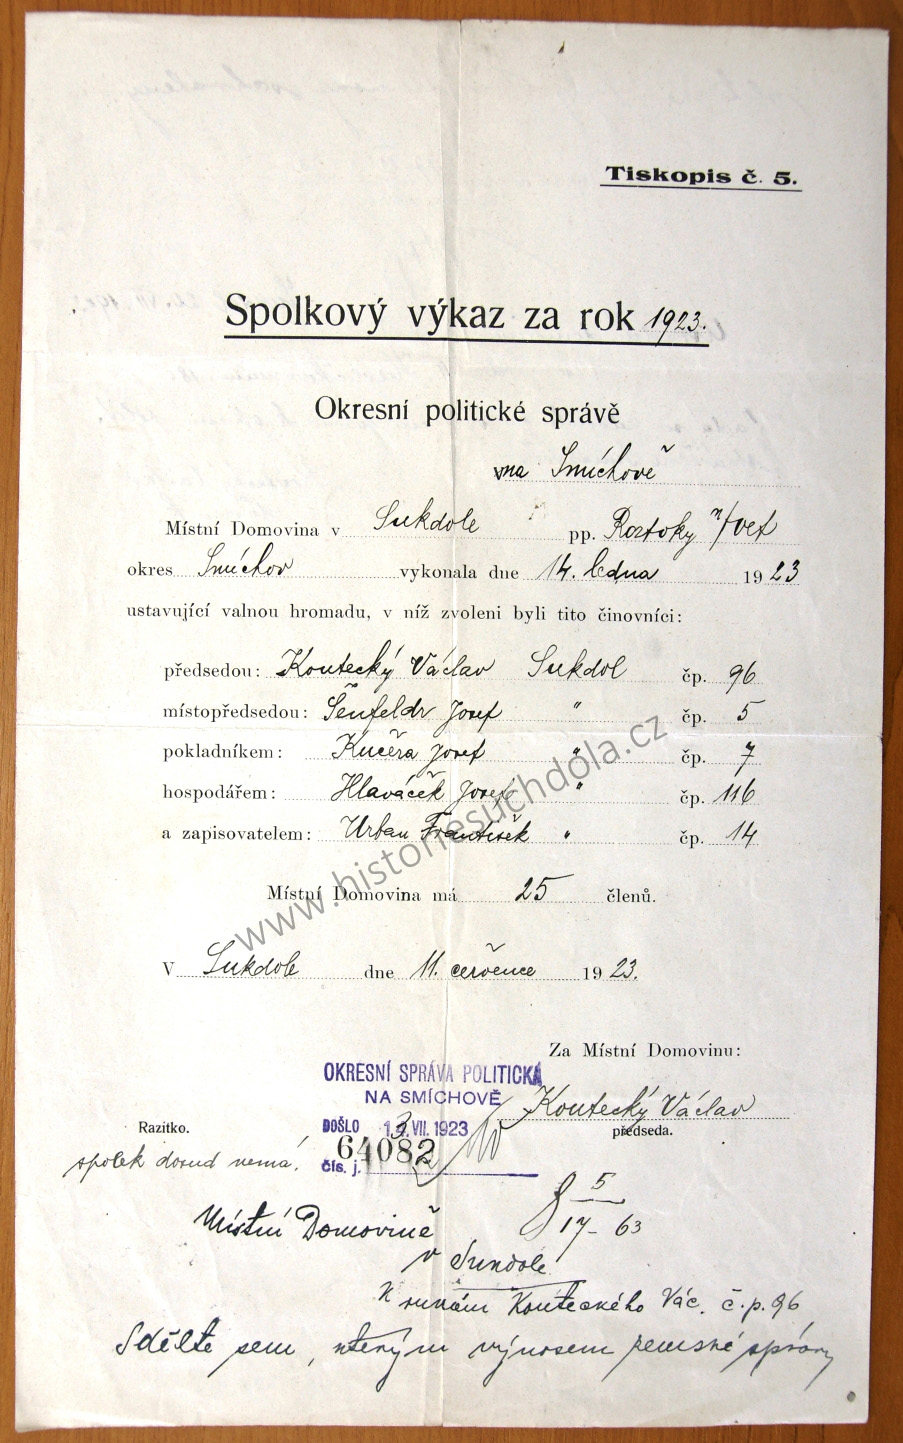 Tiskopis č. 5.
Spolkový výkaz za rok 1923.
Okresní politické správě
na Smíchově
Místní Domovina v Sukdole pp. Roztoky n/Vlt
okres Smíchov vykonala dne 14. ledna 1923
ustavující valnou hromadu, v níž zvoleni byli tito činovníci:
předsedou: Koutecký Václav Sukdol čp. 96
místopředsedou: Šenfeldr Josef " čp. 5
pokladníkem: Kučera Josef " čp. 7
hospodářem: Hlaváček Josef " čp. 116
a zapisovatelem: Urban František " čp. 14
Místní Domovina má 25 členů.
V Sukdole dne 11. července 1923.
Za Místní Domovinu:
OKRESNÍ SPRÁVA POLITICKÁ
NA SMÍCHOVĚ
Koutecký Václav
Razítko. DOŠLO 13.VII.1923 předseda.
spolek dosud nemá. čís. j. 64082
8 5
17 - 63
Místní Domovině
v Sukdole
K rukám Kouteckého Vác. č.p. 96
Sdělte sem, kterým výnosem zemské správy
www.historiesuchdola.cz